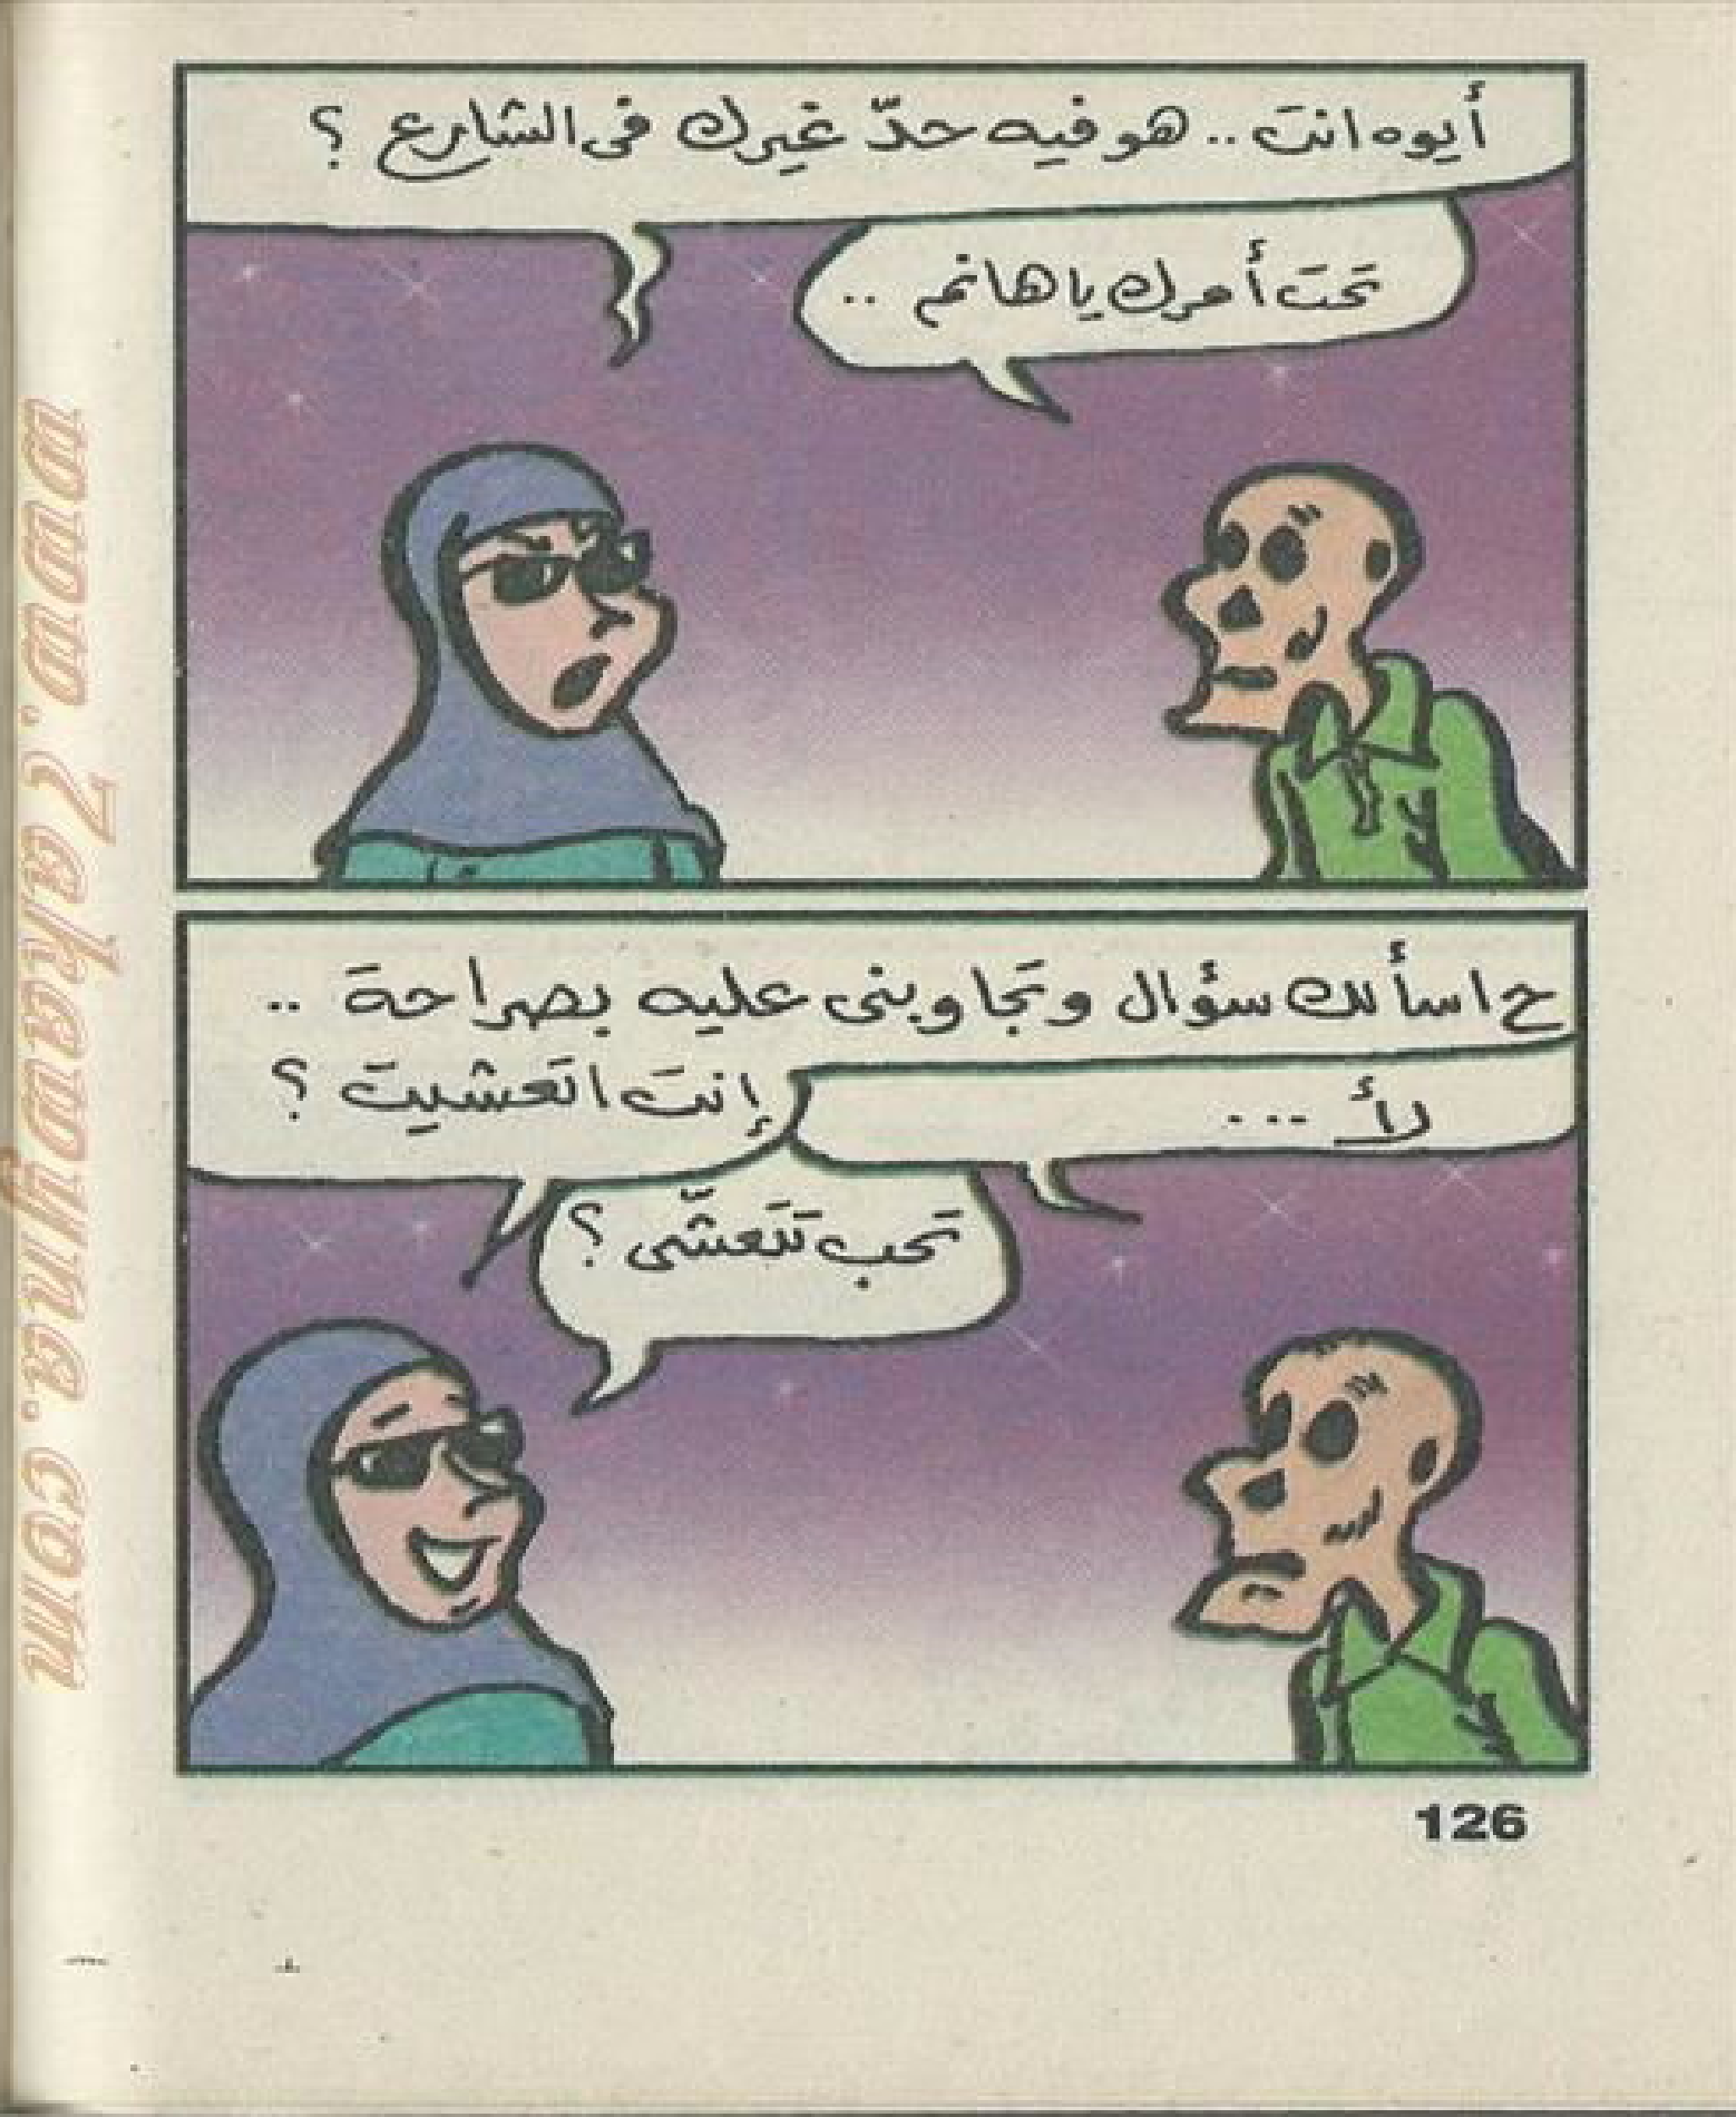 أيوه انت.. هو فيه حدّ غيرك فى الشارع ؟
تحت أمرك يا هانم ..
ح اسألك سؤال وتجاوبنى عليه بصراحة ..
إنت اتعشيت ؟
لأ ...
تحب تتعشّى ؟
126
www.Zakawyna.com